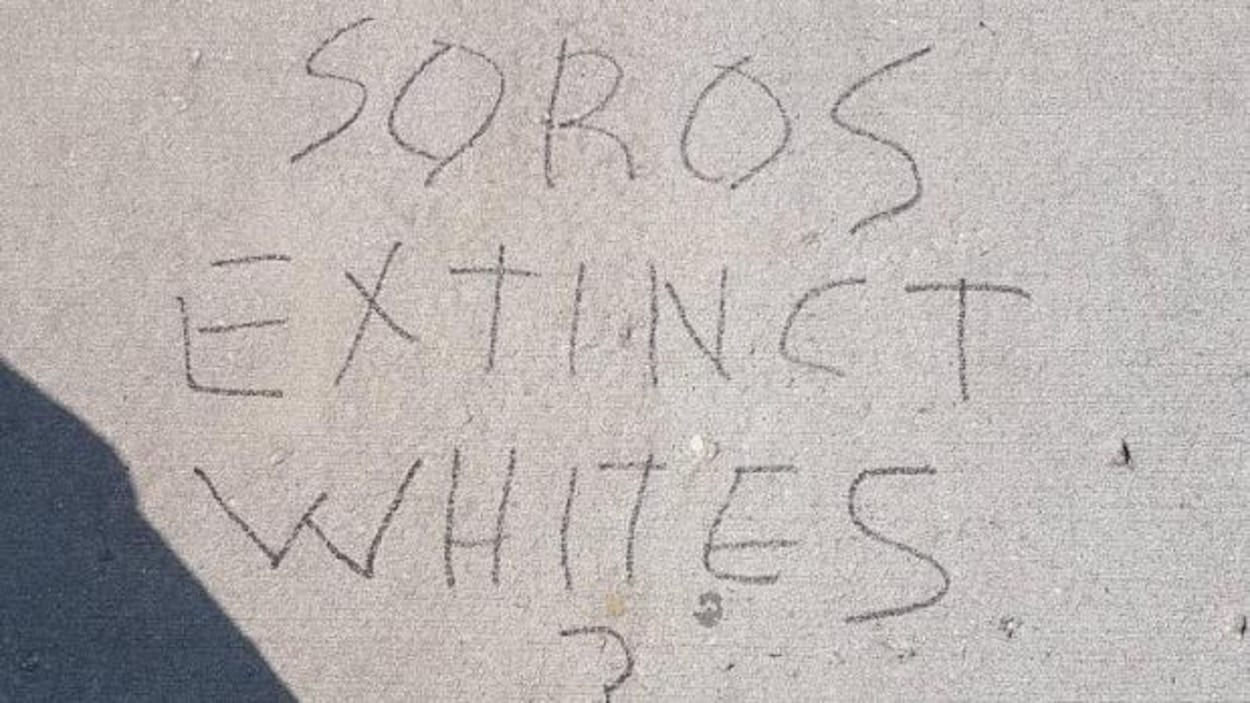 SOROS
EXTINCT
WHITES
?